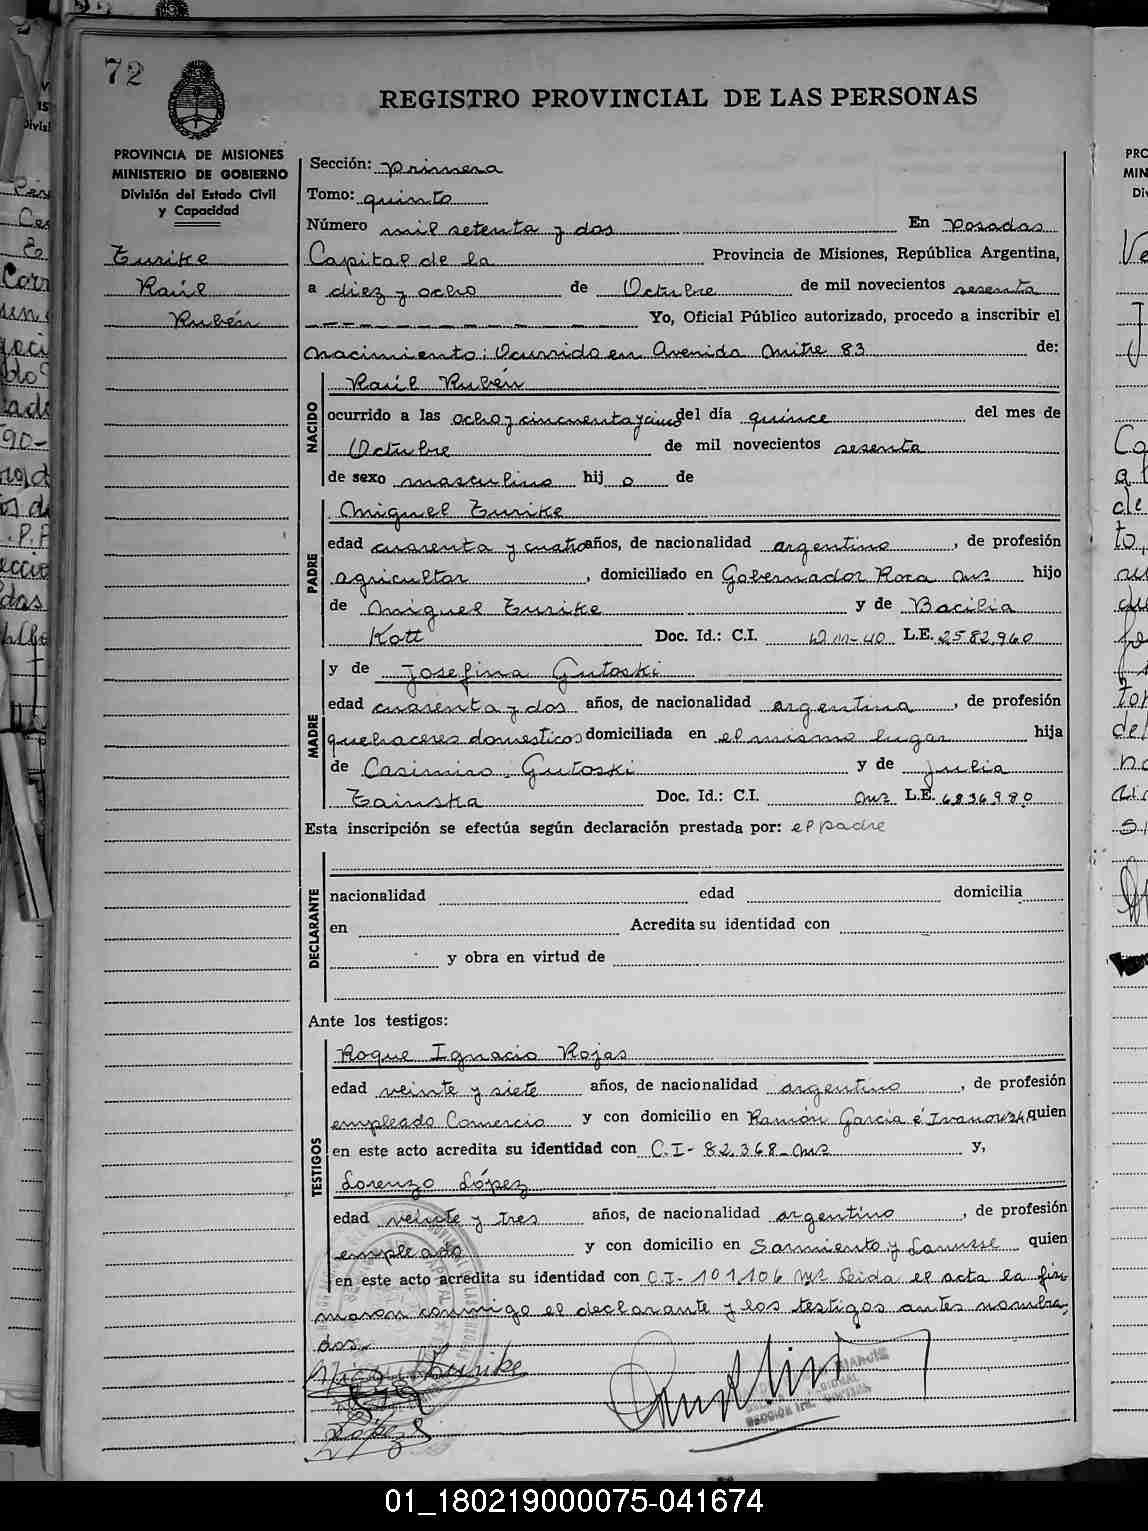 72
REGISTRO PROVINCIAL DE LAS PERSONAS
PROVINCIA DE MISIONES
MINISTERIO DE GOBIERNO
División del Estado Civil
y Capacidad
Eurike
Raúl
Rubén
Sección: Primera
Tomo: quinto
Número mil setenta y dos En Posadas
Capital de la Provincia de Misiones, República Argentina,
a diez y ocho de Octubre de mil novecientos sesenta
Yo, Oficial Público autorizado, procedo a inscribir el
nacimiento: Ocurrido en Avenida Mitre 83 de:
NACIDO
Raúl Rubén
ocurrido a las ocho y cincuenta y cinco del día quince del mes de
Octubre de mil novecientos sesenta
de sexo masculino hij o de
PADRE
Miguel Eurike
edad cuarenta y cuatro años, de nacionalidad argentino, de profesión
agricultor, domiciliado en Gobernador Roca Mns hijo
de Miguel Eurike y de Bacilia
Kott Doc. Id.: C.I. L.E. 2582,960
MADRE
y de Josefina Gutoski
edad cuarenta y dos años, de nacionalidad argentina, de profesión
quehaceres domesticos domiciliada en el mismo lugar hija
de Casimiro Gutoski y de Julia
Zainska Doc. Id.: C.I. Mns L.E. 6836980
Esta inscripción se efectúa según declaración prestada por: el padre
DECLARANTE
nacionalidad edad domicilia
en Acredita su identidad con
y obra en virtud de
Ante los testigos:
TESTIGOS
Roque Ignacio Rojas
edad veinte y siete años, de nacionalidad argentino, de profesión
empleado Comercio y con domicilio en Ramón Garcia é quien
en este acto acredita su identidad con C.I- 82.368- Mns y,
Lorenzo López
edad veinte y Tres años, de nacionalidad argentino, de profesión
empleado y con domicilio en Sarmiento y Lanusse quien
en este acto acredita su identidad con C.I- 101,106 Mns Leida el acta la fir
maron conmigo el declarante y los testigos antes nombra,
dos.
Eurike
López
01_180219000075-041674